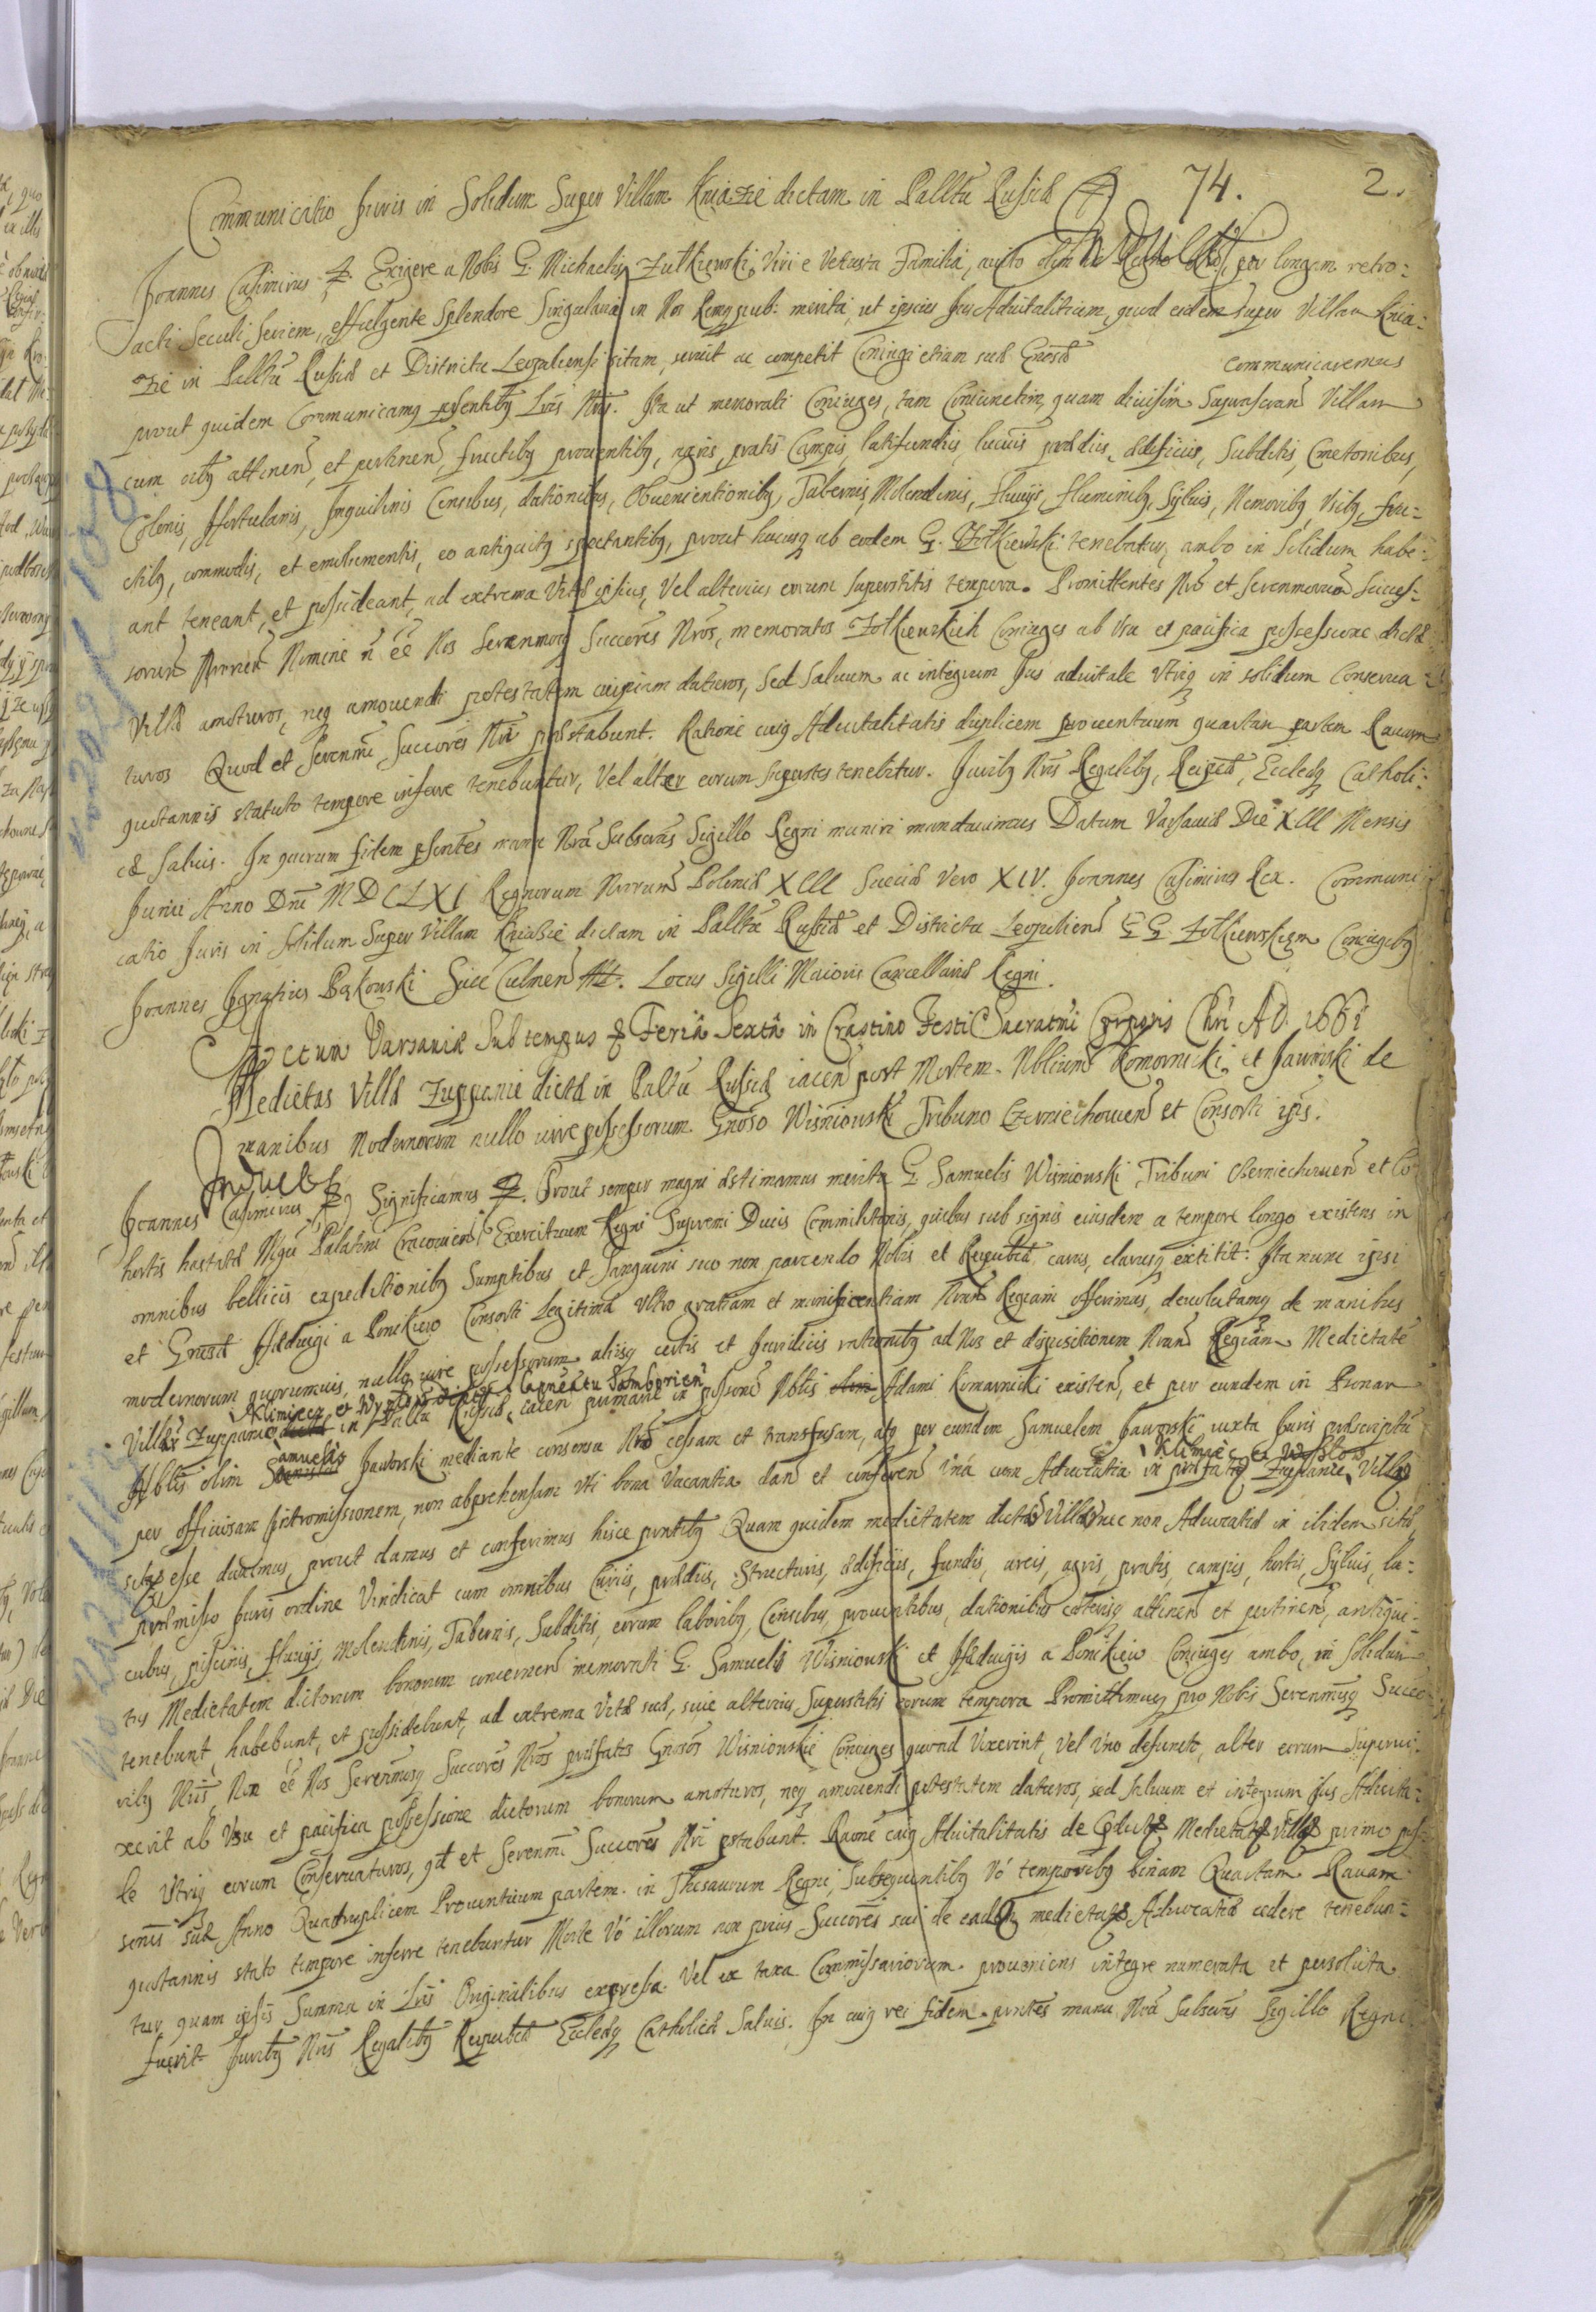 74. 2.
Communicatio Juris in Solidum Super Villam Kniazie dictam in Palltu Russiæ
Joannes Casimirus &. Exigere a Nobis G. Michaelis Zulkiewski, Viri e Vetusta Familia, per longam retro:
acti Seculi Seriem, effulgente Splendore Singularia in Nos Remqpub: merita, ut ipsius Jus Advitalitium, quod eidem super Villam Knia:
zie in Palltu Russiæ et Districtu Leopoliensi sitam, servit ac competit Coniugi etiam suæ Gnosæ communicaremus
prout quidem Communicamq pñsentibq Lris Nris. Ita ut memorati Coniuges, tam Coniunctim, quam divisim Suprascran Villam
cum oibq attinen, et pertinen, fructibq proventibq, agris, pratis Campis, latifundiis, lucuis prædiis, ædificiis, Subditis, Cmetonibus,
Colonis, Hortulanis, Inquilinis Censibus, dationibus, Obuenientionibq, Tabernis, Molendinis, Fluuijs, Fluminibq, Syluis, Nemoribq, Usibq, fru=
ctibq, commodis, et emolumentis, eo antiquitq spectantibq, prout hucusq ab eodem G. Zołkiewski tenebatur, ambo in Solidum habe=
ant teneant, et possideant, ad extrema Vitæ ipsius, Vel alterius eorum superstitis tempora. Promittentes Nro et Serenmorum Succes=
sorum Nrorum Nomine ñ éé Nos Serenmosq Succores Nros, memoratos Zołkiewskich Coniuges ab Usu et pacifica possessione dictæ
Villæ amoturos, neq amovendi potestatem cuipiam daturos, Sed Saluum ac integrum Jus aduitale Utriq in solidum Conserua=
turos Quod et Serenmi Succores Nri præstabunt. Ratione cuiq Aduitalitatis duplicem prouentuum quartam partem Rauam
quotannis statuto tempore inferre tenebuntur, Vel alter eorum superstes tenebitur. Juribq Nris Regalibq, Reipcæ, Ecclæq Catholi:
cæ Saluis. In quorum fidem psentes manu Nra Subscras Sigillo Regni muniri mandauimus Datum Varsauiæ Die XIII Mensis
Junii Anno Dni MDCLXI Regnorum Nrorum Poloniæ XIII Sueciæ Vero XIV. Joannes Casimirus Rex. Communi
catio Juris in Solidum Super Villam Kniazie dictam in Palltu Russiæ et Districtu Leopolien GG. Zołkiewskiem Coniugibq
Joannes Ignatius Bąkowski Succ Culmen. Locus Sigilli Maioris Cancellariæ Regni.
Actum Varsauiæ Sub tempus & Feria Sexta in Crastino Festi Sacratmi Corporis Chri AD. 1661
Medietas Villæ Zuppanie dictæ in Paltu Russiæ iacen post Mortem Nblium Komornicki, et Jaworski de
manibus Modernorum nullo iure possessorum Gnoso Wisniowski Tribuno Czerniechouien et Consorti ipis.
Induct
Joannes Casimirus & Significamus &. Prout semper magni æstimamus merita G. Samuelis Wisniouski Tribuni Czerniechouien et Co-
hortis hastatæ Mgci Palatini Cracouien Exercituum Regni Supremi Ducis Commilitonis, quibus sub signis eiusdem a tempore longo existens in
omnibus bellicis expeditionibq Sumptibus et Sanguini suo non parcendo Nobis et Reipubcæ carus, clarusq extitit: Ita nunc ipsi
et Gnosæ Heduigi a Ponikiew Consorti Legitimæ Ultro gratiam et munificentiam Nram Regiam offerimus, deuolutamq de manibus
modernorum quorumuis, nullo iure possessorum aliisq certis et Juridicis rationibq ad Nos et dispositionem Nram Regiam Medietate
Klimiecz et
Villar Zuppanie in Palltu Russiæ iacen primane in possone Nblis Adami Komarnicki existen, et per eundem in Pronan
Nblis olim Samuelis Jaworski mediante consensu Nro cessam et transfusam, atq per eundem Samuelem Jaworski iuxta Juris præscriptu
per officiosam Intromissionem, non abprehensam uti bona Vacantia dan et conferen Una cum Aduocatia in præfatis Klimiec Zuppanie, Villis
sitaq esse duximus, prout damus et conferimus hisce pntibq Quam quidem medietatem dictæ Villæ nec non Aduocatiæ in ibidem sitæ
præmisso Juris ordine Vindicat cum omnibus Curiis, prædiis, Structuris, ædificiis, fundis, areis, agris, pratis, campis, hortis, Syluis, la=
cubus, piscinis, fluuijs, Molendinis, Tabernis, Subditis, eorum laboribq, Censibus, prouentibus, dationibus cæterisq attinen et pertinen, antiqui=
tus Medietatem dictorum bonorum concernen memorati G. Samuelis Wisniouski et Heduigis a Ponikiew Coniuges ambo, in Solidum
tenebunt, habebunt, et possidebunt, ad extrema Vitæ suæ, siue alterius Superstitis eorum tempora Promittimusq pro Nobis Serenmisq Succo
ribq Nris, Non éé Nos Serenmosq Succores Nros præfatos Gnosos Wisniouskie Coniuges quoad Vixerint, Vel Uno defuncto, alter eorum Superui=
xerit ab Usu et pacifica possessione dictorum bonorum amoturos, neq amouendi potestatem daturos, sed saluum et integrum Jus Aduita=
le Utriq eorum Conseruaturos, qd et Serenmi Succores Nri pstabunt. Raone cuiq Aduitalitatis de Medietate Villæ primo pos=
sonis suæ Anno Quadruplicem Prouentuum partem in Thesaurum Regni, Subsequentibq Vo temporibq binam Quartam Rauam
quotannis stato tempore inferre tenebuntur Morte Vo illorum non prius Succores sui de eadem medietate Aduocatia cedere tenebun=
tur quam ipsis Summa in Lris Originalibus expressa. Vel ex taxa Commissariorum proueniens integre numerata et persoluta
fuerit Juribq Nris Regalibq Reipubcæ Eccleæq Catholicæ Saluis. In cuiq rei fidem pntes manu Nra Subscras Sigillo Regni